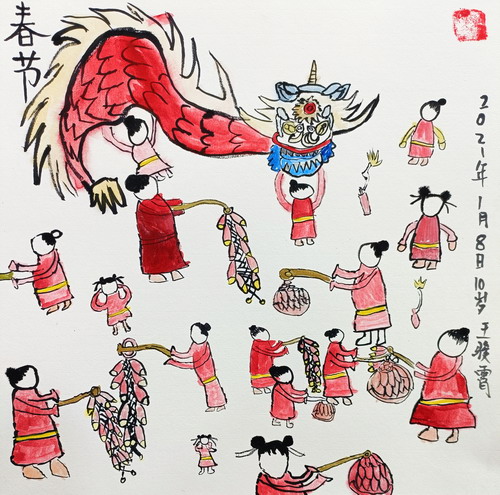 春节
2021年1月8日10岁王